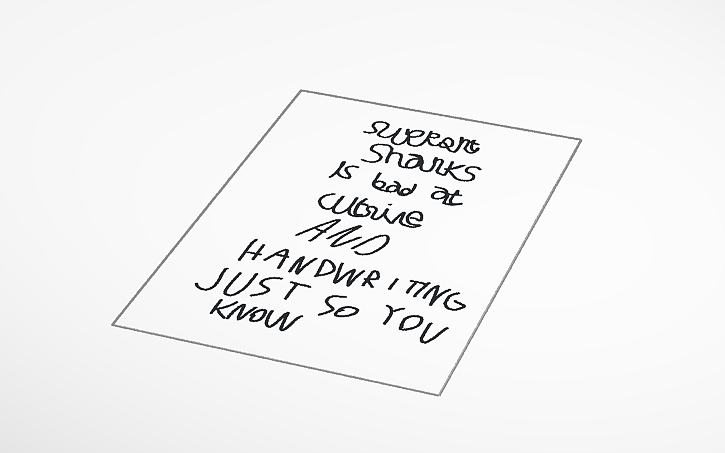 Sharks
Is bad at
AND
HANDWRITING
JUST SO YOU
KNOW